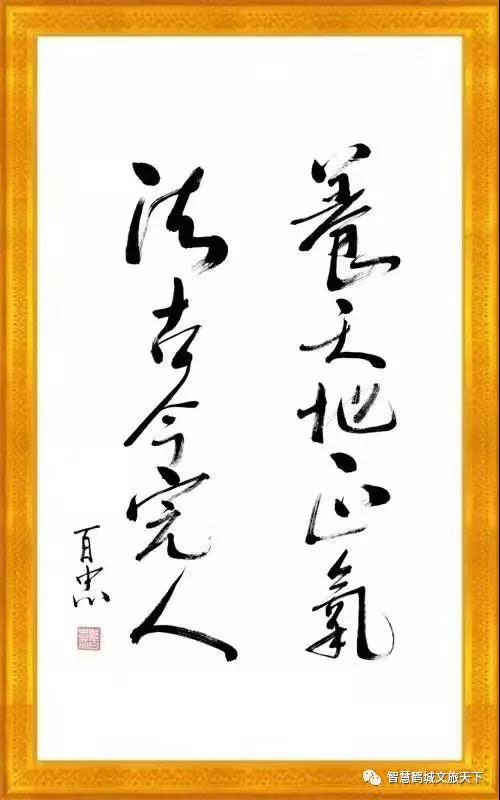 養天地正氣
法古今完人
百忠
智慧鹤城文旅天下